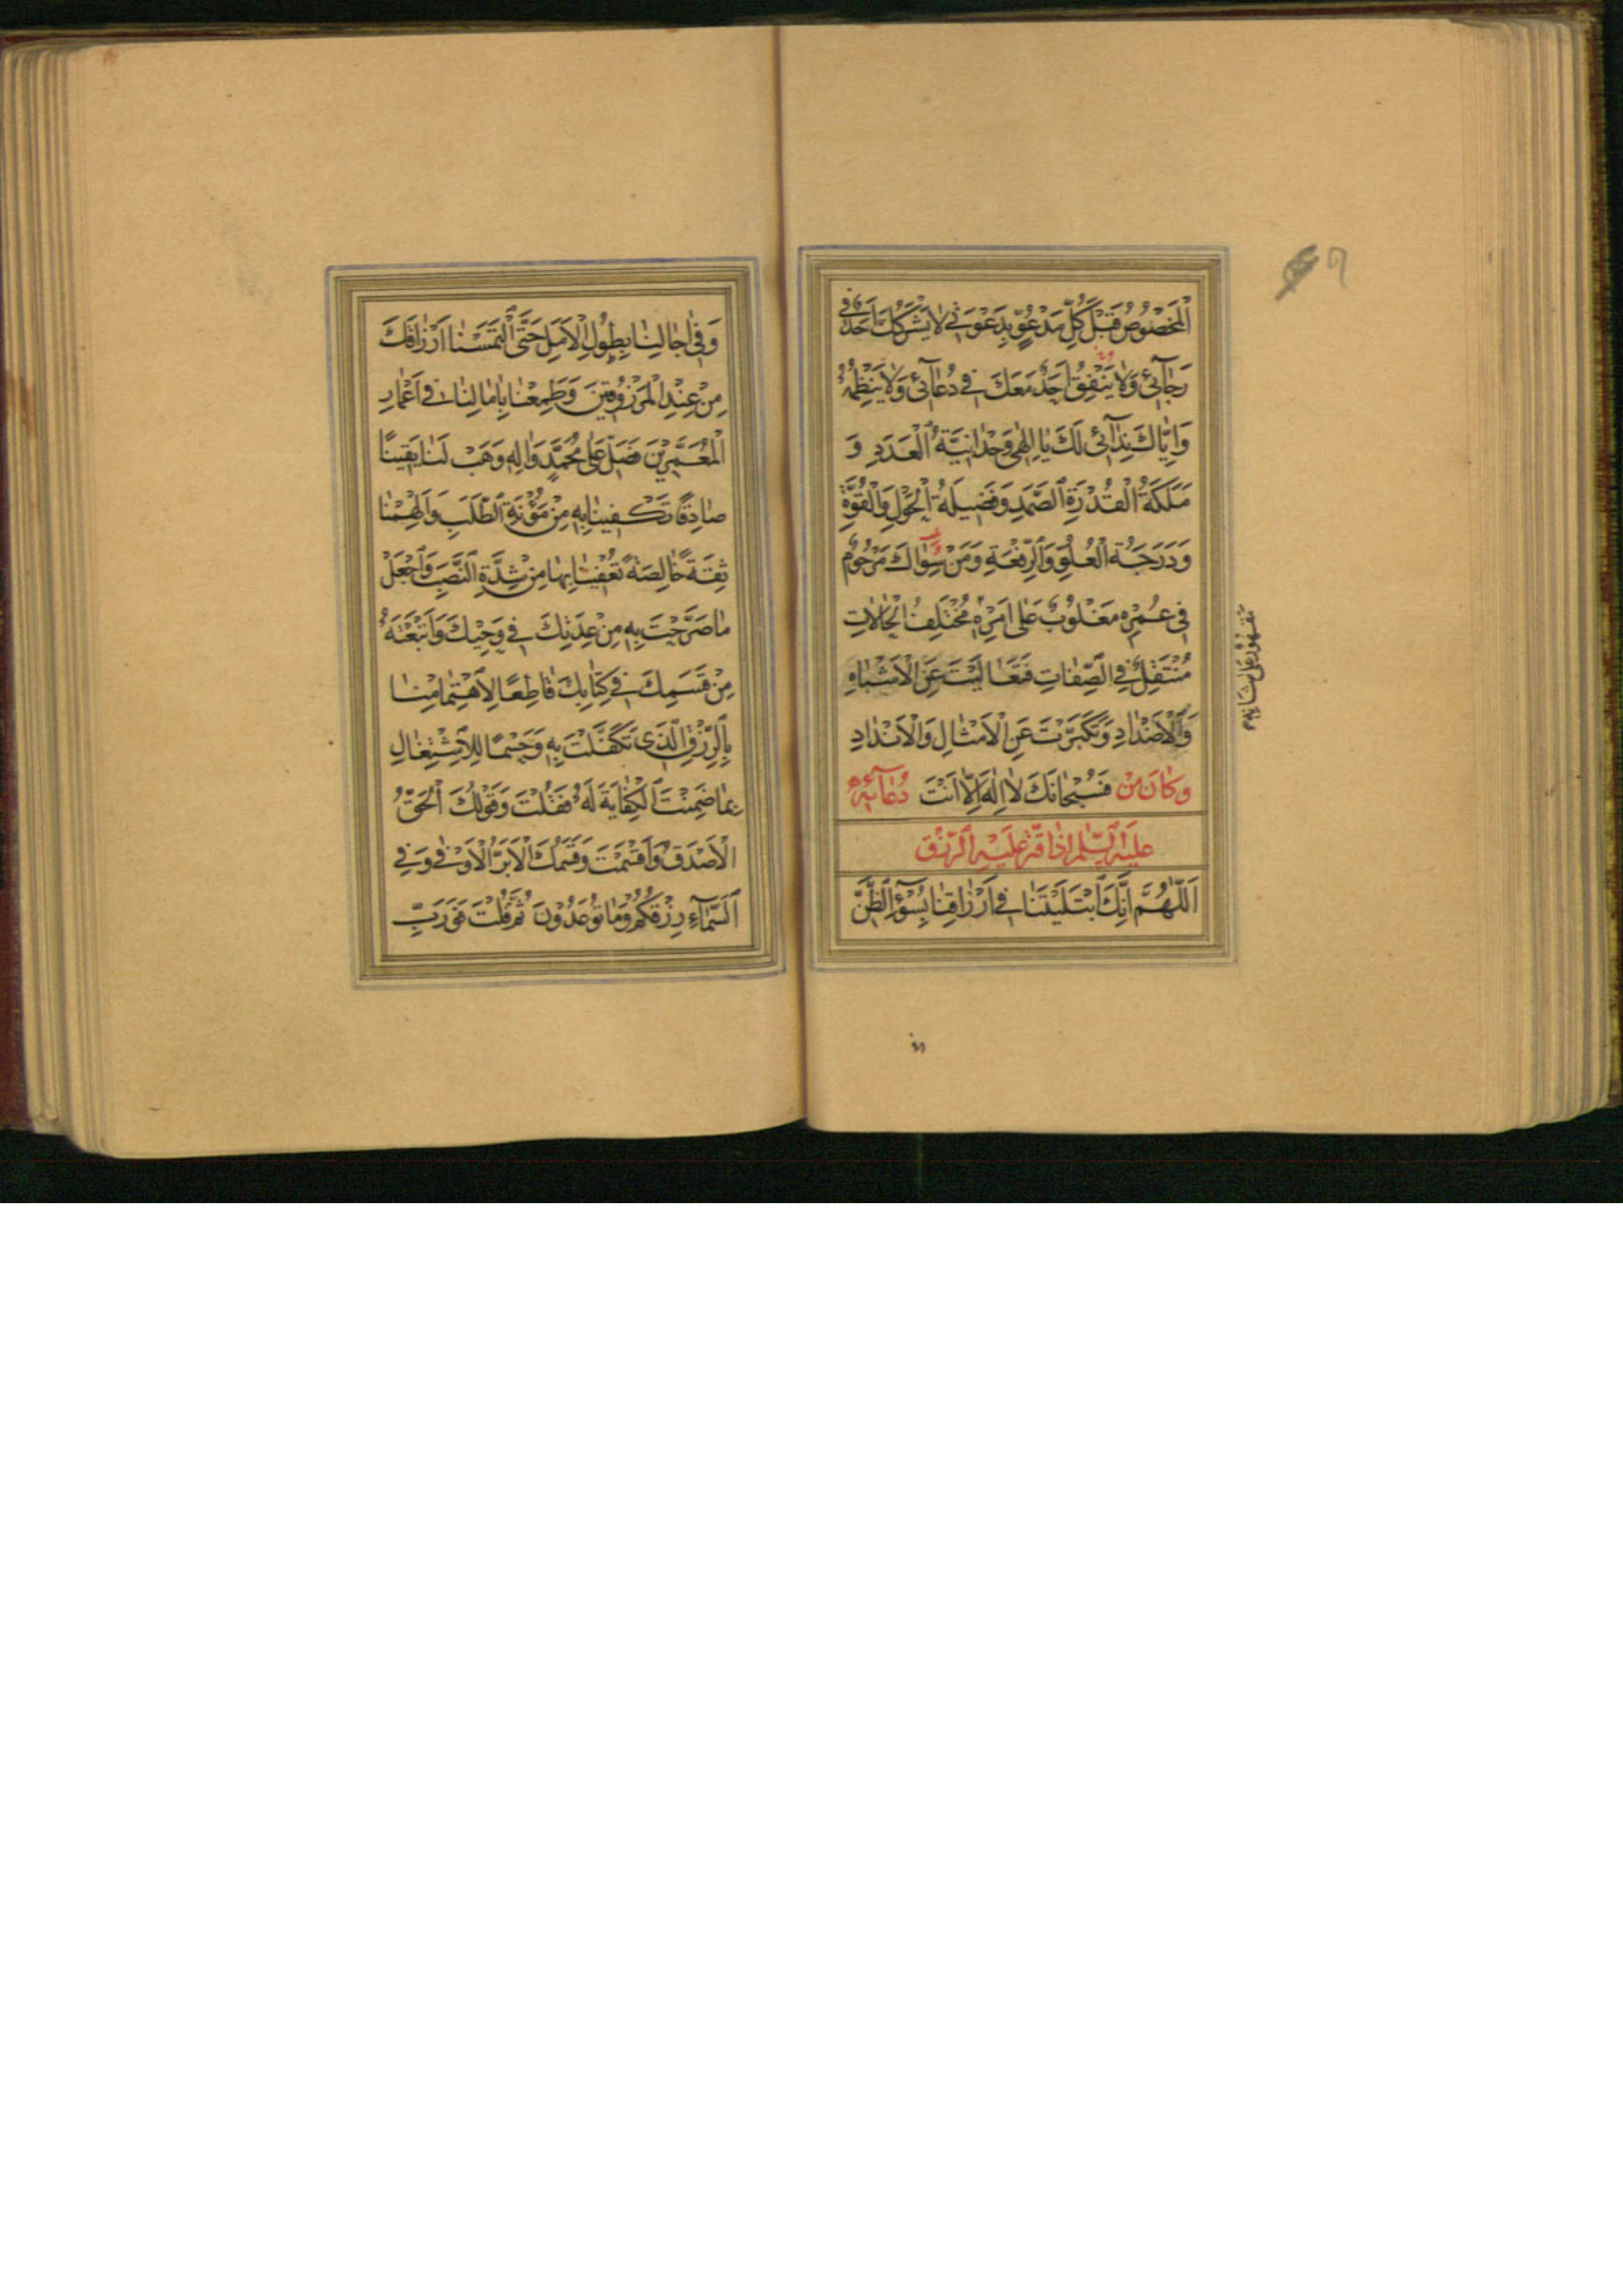 الْمَخْصُوصُ قَبْلَ كُلِّ مَدْعُوٍّ بِدَعْوَتِي لَا يَشْرَكُكَ اَحَدٌ فِي
رَجَآئِي وَلَا يَتَّفِقُ اَحَدٌ مَعَكَ فِي دُعَآئِي وَلَا يَنْظِمُهُ
وَاِيَّاكَ نِدَآئِي لَكَ يَا اِلٰهِي وَحْدَانِيَّةُ الْعَدَدِ وَ
مَلَكَةُ الْقُدْرَةِ الصَّمَدِ وَفَضِيلَةُ الْحَوْلِ وَالْقُوَّةِ
وَدَرَجَةُ الْعُلُوِّ وَالرِّفْعَةِ وَمَنْ سِوَاكَ مَرْحُومٌ
فِي عُمُرِهِ مَغْلُوبٌ عَلٰى اَمْرِهِ مُخْتَلِفُ الْحَالَاتِ
مُتَنَقِّلٌ فِي الصِّفَاتِ فَتَعَالَيْتَ عَنِ الْاَشْبَاهِ
وَالْاَضْدَادِ وَتَكَبَّرْتَ عَنِ الْاَمْثَالِ وَالْاَنْدَادِ
وَكَانَ مِنْ فَسُبْحَانَكَ لَا اِلٰهَ اِلَّا اَنْتَ دُعَآئِهِ
عَلَيْهِ السَّلٰمُ اِذَا قُتِّرَ عَلَيْهِ الرِّزْقُ
اَللّٰهُمَّ اِنَّكَ ابْتَلَيْتَنَا فِي اَرْزَاقِنَا بِسُوْءِ الظَّنِّ
مَقْهُورٌ عَلٰى شَانِهِ
وَفِي اٰجَالِنَا بِطُولِ الْاَمَلِ حَتَّى الْتَمَسْنَا اَرْزَاقَكَ
مِنْ عِنْدِ الْمَرْزُوقِينَ وَطَمِعْنَا بِاٰمَالِنَا فِي اَعْمَارِ
الْمُعَمَّرِينَ فَصَلِّ عَلٰى مُحَمَّدٍ وَاٰلِهِ وَهَبْ لَنَا يَقِينًا
صَادِقًا تَكْفِينَا بِهِ مِنْ مَؤُنَةِ الطَّلَبِ وَاَلْهِمْنَا
ثِقَةً خَالِصَةً تُعْفِينَا بِهَا مِنْ شِدَّةِ النَّصَبِ وَاجْعَلْ
مَا صَرَّحْتَ بِهِ مِنْ عِدَتِكَ فِي وَحْيِكَ وَاَتْبَعْتَهُ
مِنْ قَسَمِكَ فِي كِتَابِكَ قَاطِعًا لِاهْتِمَامِنَا
بِالرِّزْقِ الَّذِي تَكَفَّلْتَ بِهِ وَحَسْمًا لِلْاِشْتِغَالِ
بِمَا ضَمِنْتَ الْكِفَايَةَ لَهُ فَقُلْتَ وَقَوْلُكَ الْحَقُّ
الْاَصْدَقُ وَاَقْسَمْتَ وَقَسَمُكَ الْاَبَرُّ الْاَوْفٰى وَفِي
السَّمَآءِ رِزْقُكُمْ وَمَا تُوعَدُونَ ثُمَّ قُلْتَ فَوَرَبِّ